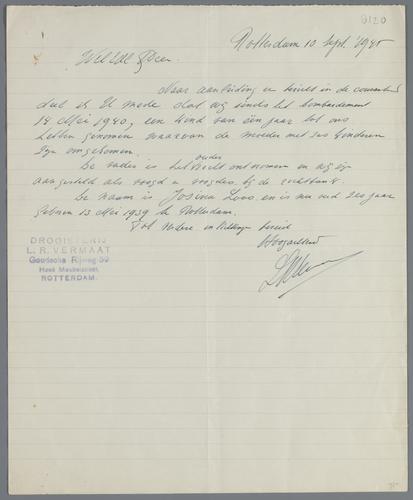 0120
Rotterdam 10 Sept. 1945
Wel Edl Heer
Naar aanleiding en bericht in de courant
deel ik U mede dat wij sinds het bombardement
14 Mei 1940, een kind van één jaar tot ons
hebben genomen waarvan de moeder met zes kinderen
zijn omgekomen.
De vader is het ouder recht ontnomen en wij zijn
aangesteld als voogd en voogdes bij de rechtbank.
De naam is Josina Loos en is nu ruim zes jaar
geboren 13 Mei 1939 te Rotterdam.
Tot verdere inlichtingen bereid
Hoogachtend
DROGISTERIJ
L. R. VERMAAT
Goudsche Rijweg 59
Hoek Meubelstraat
ROTTERDAM.